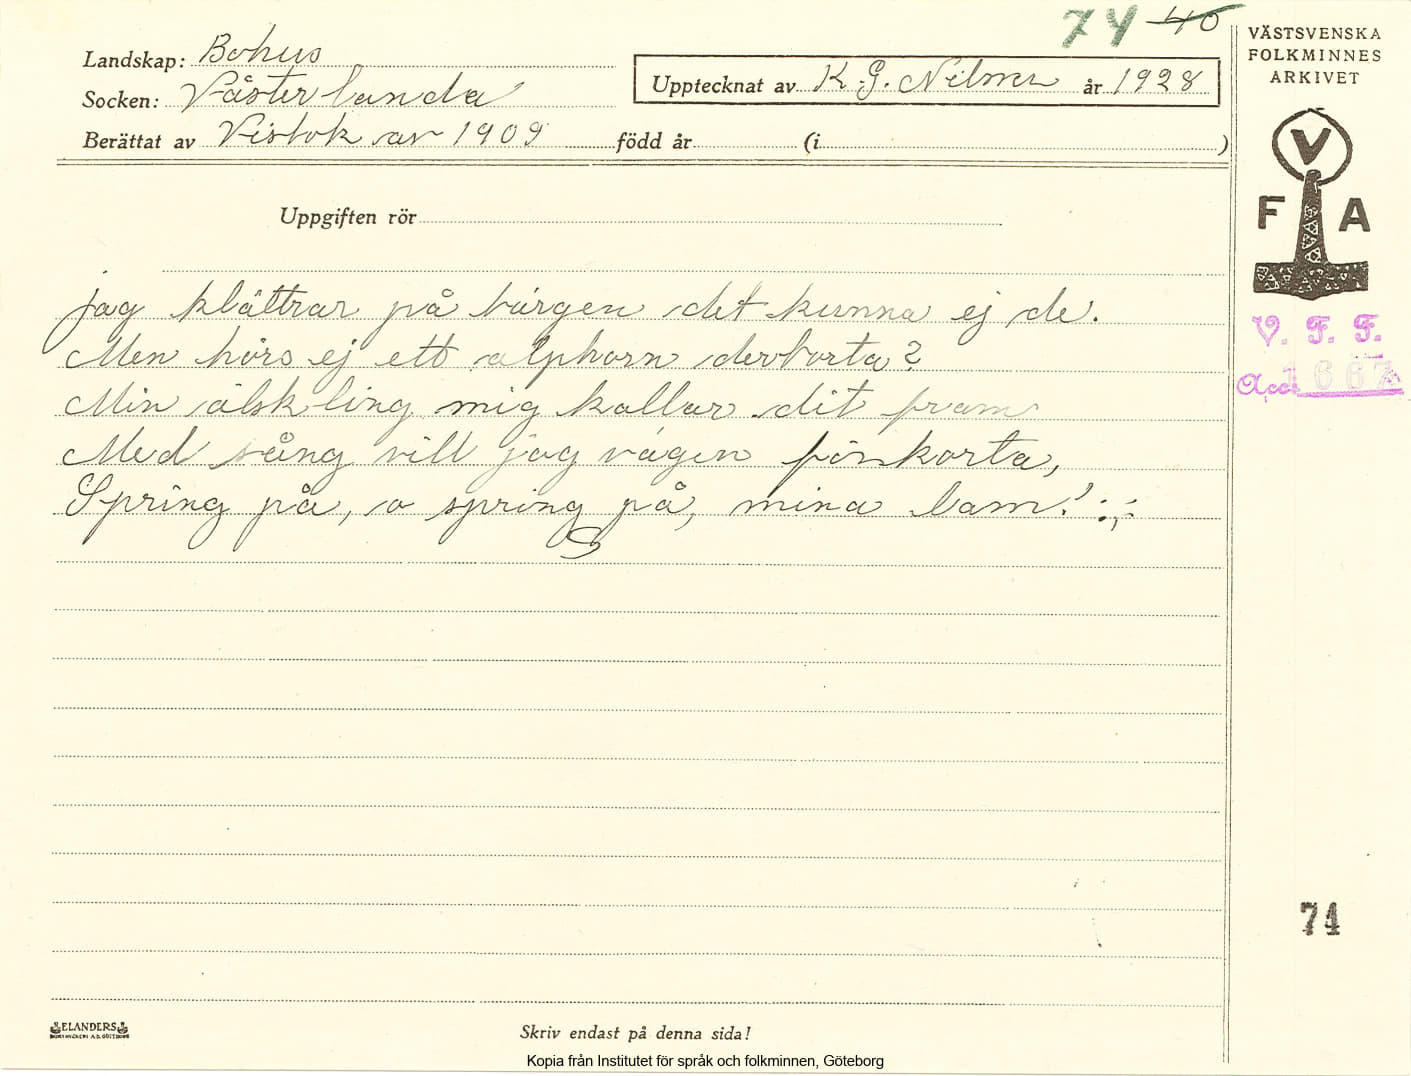 74 40
Landskap: Bohus
Socken: Västerlanda
Upptecknat av K. G. Nilson år 1928
Berättat av Visbok av 1909 född år (i )
VÄSTSVENSKA
FOLKMINNES
ARKIVET
V
F A
V. F. F.
Acc. 1667
Uppgiften rör
jag klättrar på bärgen det kunna ej de.
Men hörs ej ett alphorn derborta?
Min älskling mig kallar dit fram
Med sång vill jag vägen förkorta,
Spring på, o spring på, mina lam! :,:
74
ELANDERS
BOKTRYCKERI A.B. GÖTEBORG
Skriv endast på denna sida!
Kopia från Institutet för språk och folkminnen, Göteborg